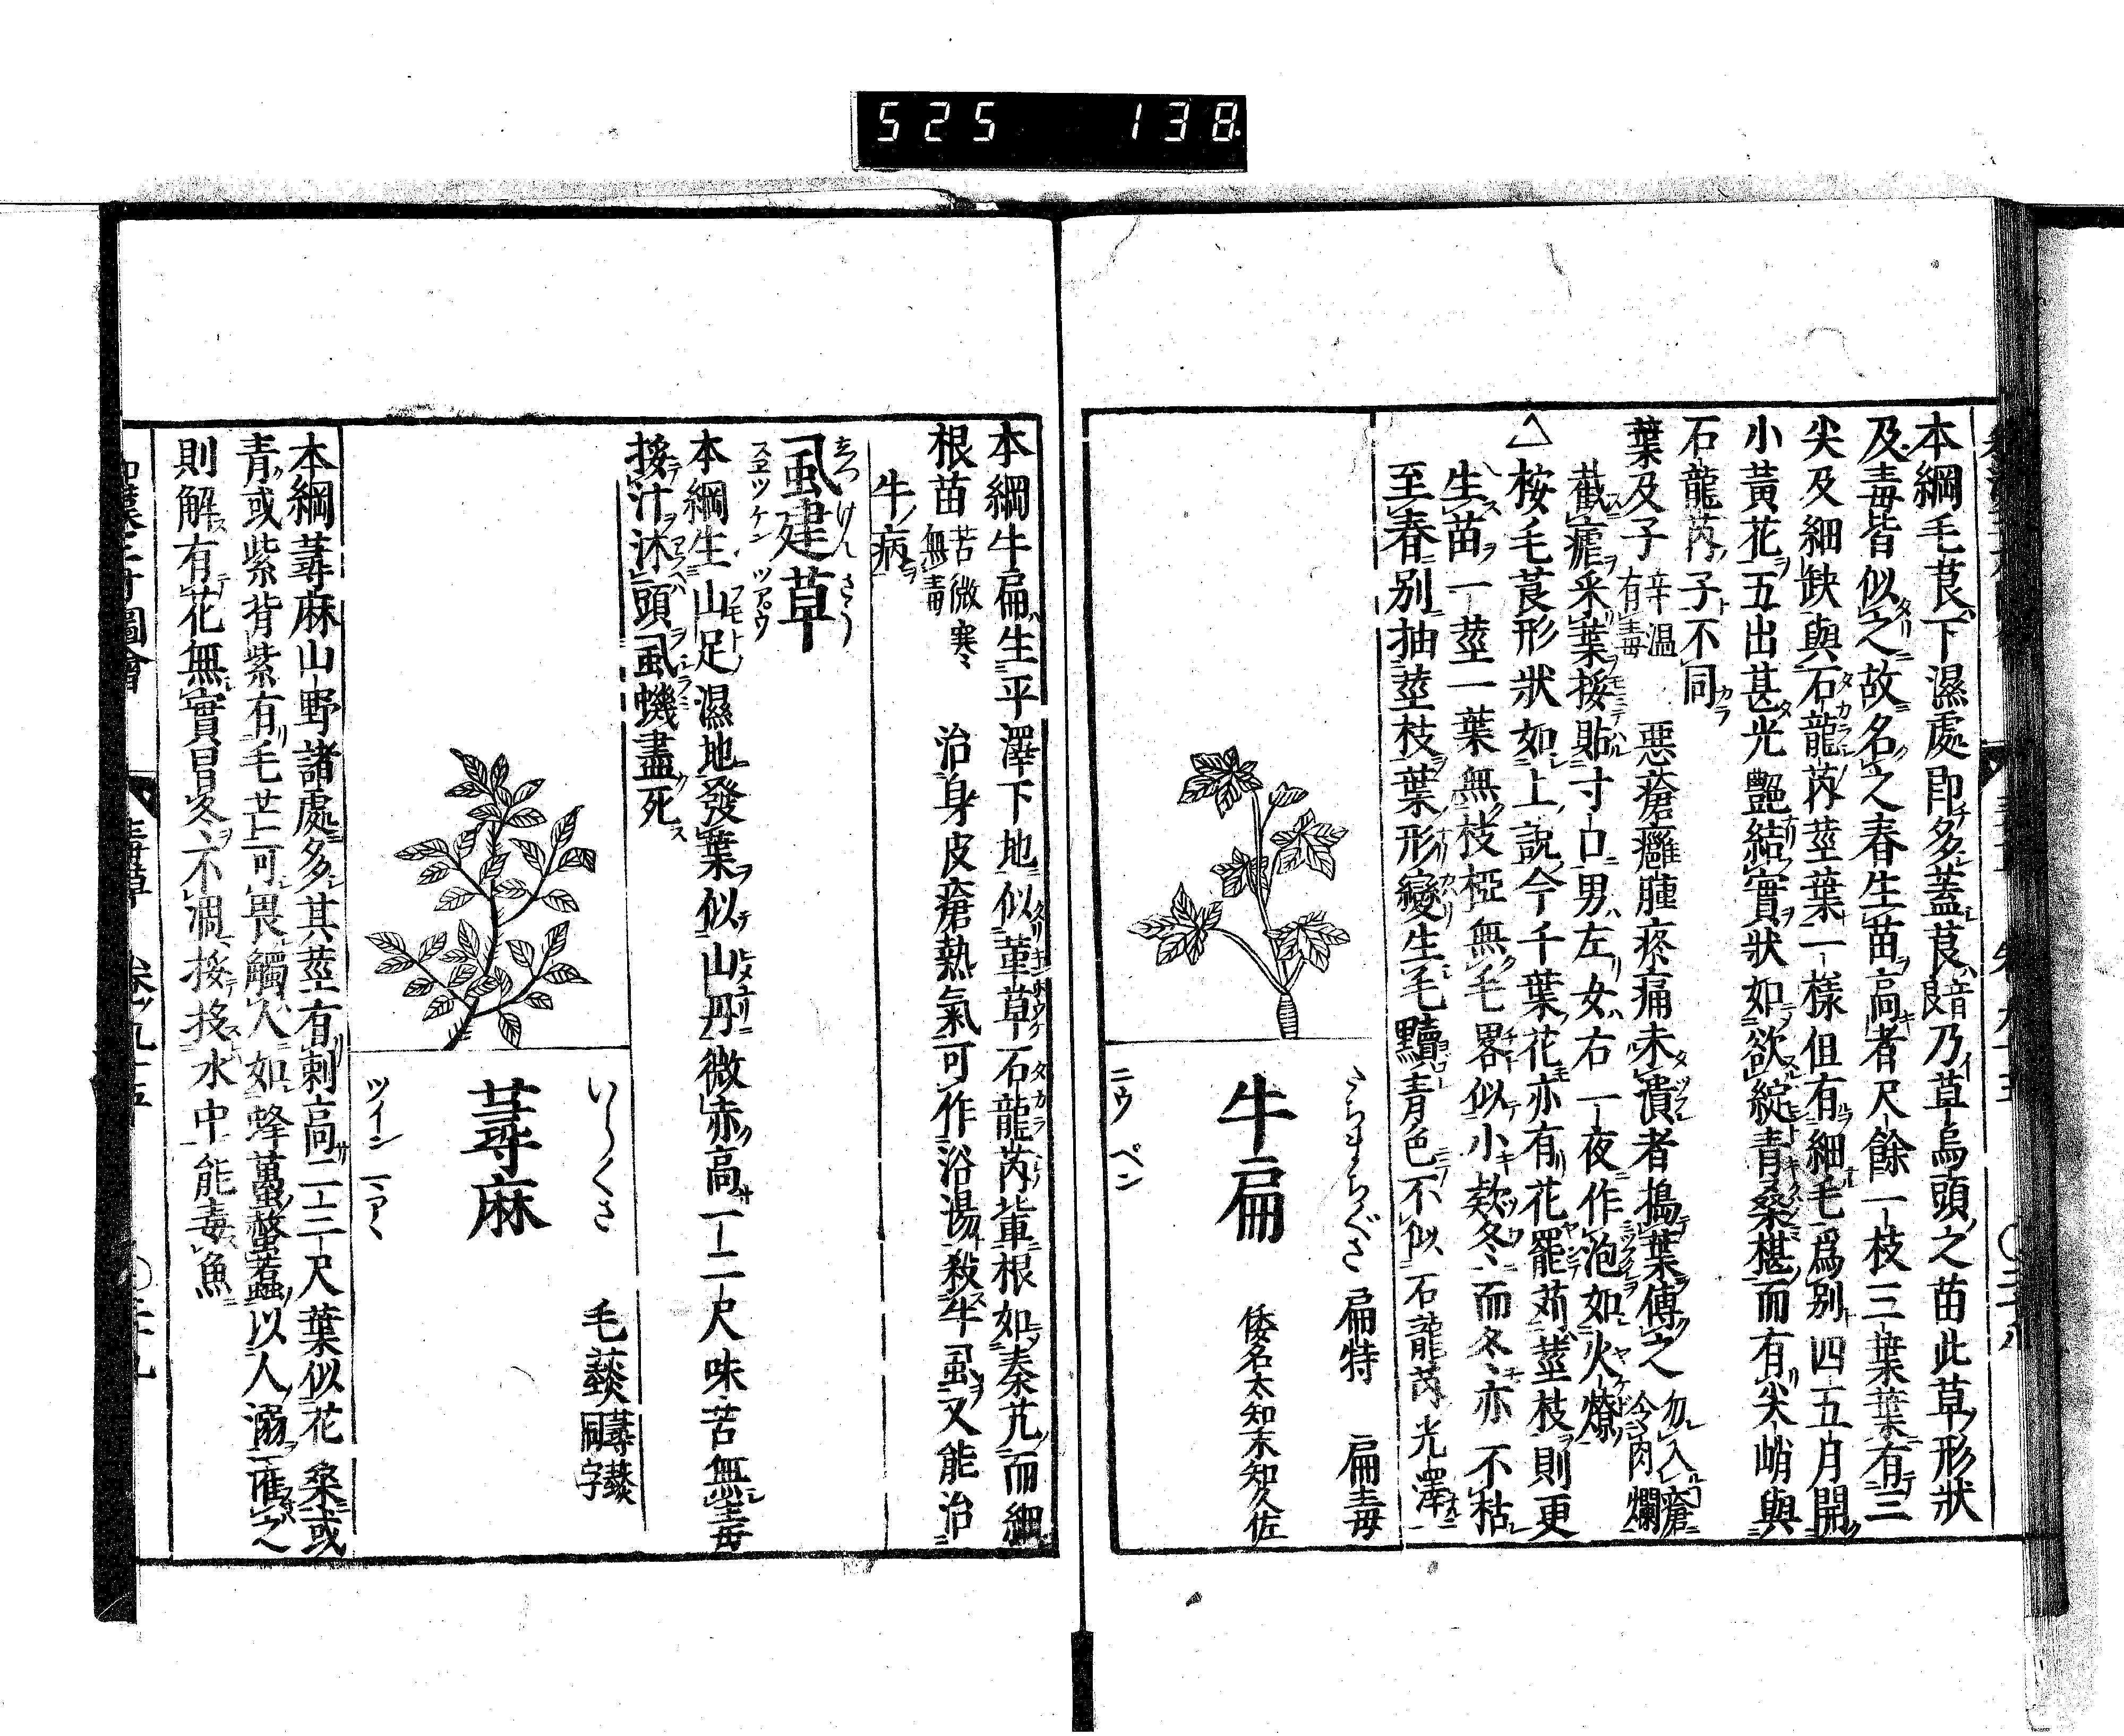 525 138
本綱毛茛下濕處即多蓋茛音良乃草烏頭之苗此草形狀
及毒皆似之故名之春生苗高者尺餘一枝三葉葉有三
尖及細缺與石龍芮莖葉一樣但有細毛爲別四五月開
小黃花五出甚光艷結實狀如欲綻青桑椹而有尖峭與
石龍芮子不同
葉及子辛温有毒 惡瘡癰腫疼痛未潰者搗葉傅之勿入瘡令肉爛
截瘧采葉挼貼寸口男左女右一夜作泡如火燎
△桉毛茛形狀如上說今千葉花亦有花罷茢莖枝則更
生苗一莖一葉無枝椏無毛畧似小欵冬而冬亦不枯
至春别抽莖枝葉形變生毛黷青色不似石龍芮光澤
たちまちぐさ 扁特 扁毒
牛扁 倭名太知末知久佐
ニウ ペン
本綱牛扁生平澤下地似菫草石龍芮輩根如秦艽而細
根苗苦微寒無毒 治身皮瘡熱氣可作浴湯殺牛虱又能治
牛病
しつけんさう
虱建草
スヱツ ケン ツア゜ウ
本綱生山足濕地發葉似山丹微赤高一二尺味苦無毒
挼汁沐頭虱蟣盡死
いらくさ 毛蕟 蕁蕟同字
蕁麻
ツイン マアヽ
本綱蕁麻山野諸處多其莖有刺高二三尺葉似花桑或
青或紫背紫有毛芒可畏觸人如蜂蠆螫蠚以人溺濯之
則解有花無實冒冬不凋挼挼水中能毒魚